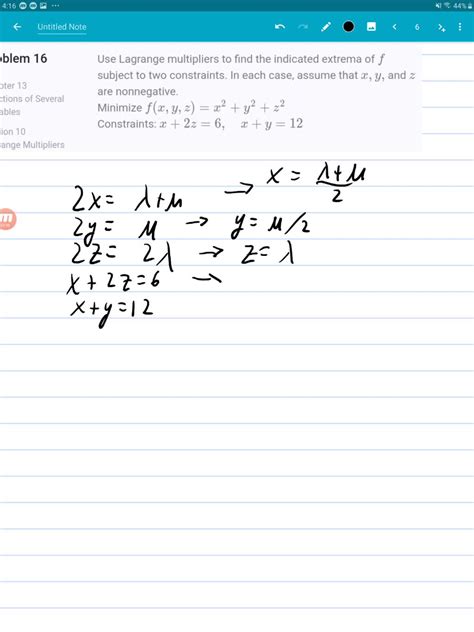 4:16 44%
Untitled Note 6
oblem 16
pter 13
ctions of Several
ables
ion 10
ange Multipliers
Use Lagrange multipliers to find the indicated extrema of f
subject to two constraints. In each case, assume that x, y, and z
are nonnegative.
Minimize f(x, y, z) = x² + y² + z²
Constraints: x + 2z = 6, x + y = 12
2x = λ+μ → x = (λ+μ)/2
2y = μ → y = μ/2
2z = 2λ → z = λ
x + 2z = 6 →
x+y=12